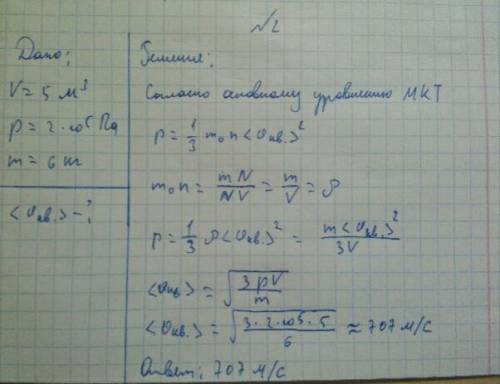 №2
Дано:
V = 5 м³
p = 2·10⁵ Па
m = 6 кг
<υкв.> - ?
Решение:
Согласно основному уравнению МКТ
p = 1/3 m₀ n <υкв.>²
m₀n = mN/NV = m/V = ρ
p = 1/3 ρ <υкв.>² = m<υкв.>²/3V
<υкв> = √(3pV/m)
<υкв.> = √(3·2·10⁵·5/6) ≈ 707 м/с
Ответ: 707 м/с